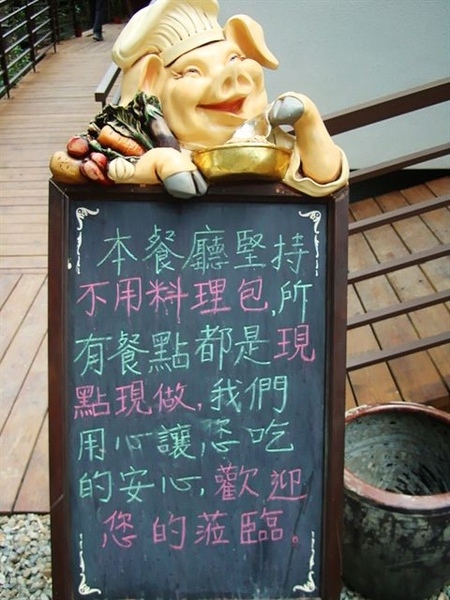 本餐廳堅持
不用料理包,所
有餐點都是現
點現做,我們
用心讓您吃
的安心,歡迎
您的蒞臨。